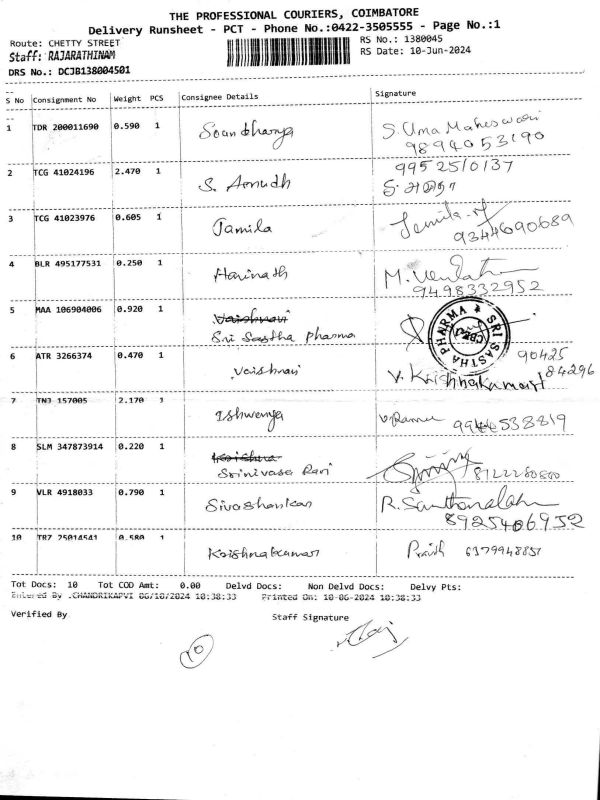 THE PROFESSIONAL COURIERS, COIMBATORE
Delivery Runsheet - PCT - Phone No.:0422-3505555 - Page No.:1
Route: CHETTY STREET RS No.: 1380045
Staff: RAJARATHINAM RS Date: 10-Jun-2024
DRS No.: DCJB138004501
S No Consignment No Weight PCS Consignee Details Signature
1 TDR 200011690 0.590 1 Soundharya S. Uma Maheswari
9894053190
2 TCG 41024196 2.470 1 S. Anirudh 9952510137
3 TCG 41023976 0.605 1 Jamila Jemila
9344690689
4 BLR 495177531 0.250 1 Harinath M.
9498332952
5 MAA 106904006 0.920 1 Vaishnavi
Sri Sastha pharma
SRI SASTHA PHARMA CBE-1
6 ATR 3266374 0.470 1 Vaishnavi V. Krishnakumar 90425
84296
7 TNJ 157005 2.170 1 Ishwarya
8 SLM 347873914 0.220 1 Srinivasa Ravi
9 VLR 4918033 0.790 1 Sivashankar R.
8925406952
10 TRZ 25014541 0.580 1 Krishnakumar 6379948851
Tot Docs: 10 Tot COD Amt: 0.00 Delvd Docs: Non Delvd Docs: Delvy Pts:
Entered By .CHANDRIKAPVI 06/10/2024 10:38:33 Printed On: 10-06-2024 10:38:33
Verified By Staff Signature
10